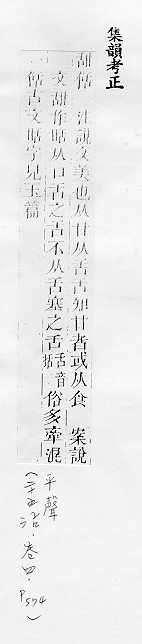 集韻考正
甜𠯑 注說文美也从甘从舌舌知甘者或从食 案說
文甜作𠯑从口舌之舌不从舌塞之舌舌音括俗多牽混
𠯑古文甛字見玉篇
平聲
(二十五沾.卷四.
P574)